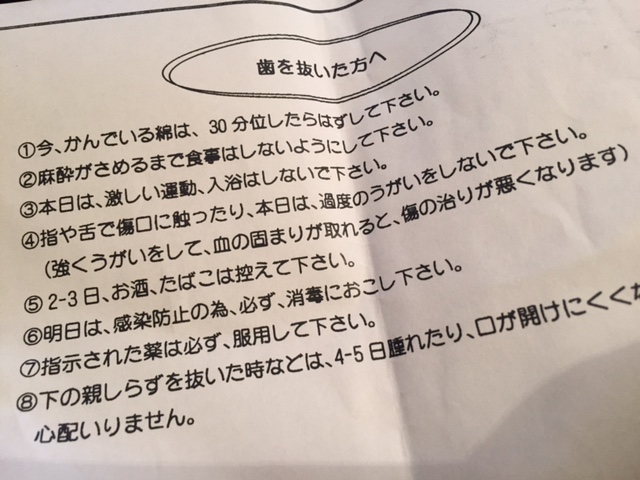 歯を抜いた方へ
①今、かんでいる綿は、30分位したらはずして下さい。
②麻酔がさめるまで食事はしないようにして下さい。
③本日は、激しい運動、入浴はしないで下さい。
④指や舌で傷口に触ったり、本日は、過度のうがいをしないで下さい。
(強くうがいをして、血の固まりが取れると、傷の治りが悪くなります)
⑤2-3日、お酒、たばこは控えて下さい。
⑥明日は、感染防止の為、必ず、消毒におこし下さい。
⑦指示された薬は必ず、服用して下さい。
⑧下の親しらずを抜いた時などは、4-5日腫れたり、口が開けにくくな
心配いりません。